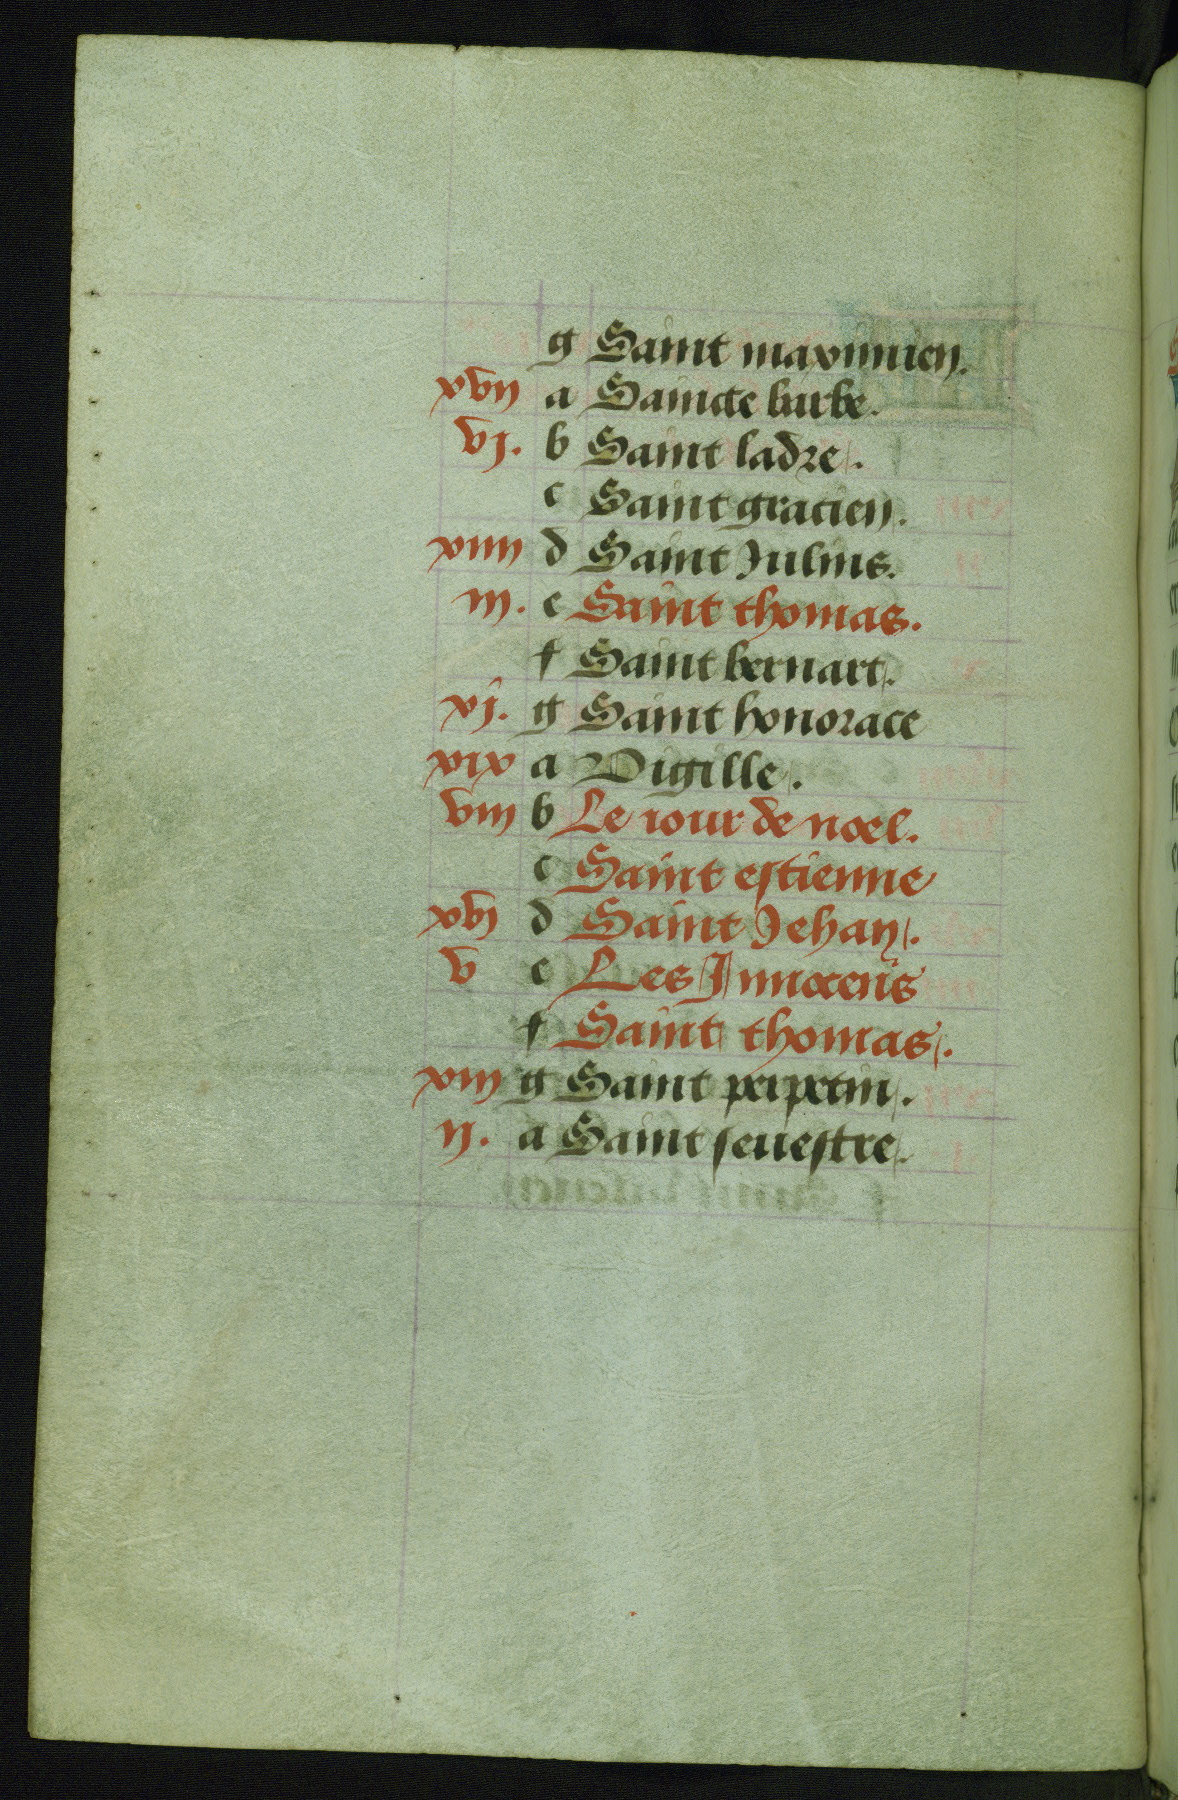 g Saint maximien.
xvij a Saincte barbe.
vj. b Saint ladre.
c Saint gracien.
xiiij d Saint Julius.
iij. e Saint thomas.
f Saint bernart.
xj. g Saint honorace
xix a Vigille.
viij b Le iour de noel.
c Saint estienne
xvj d Saint Jehan.
v e Les Innocens
f Saint thomas.
xiij g Saint perpetin.
ij. a Saint seuestre.